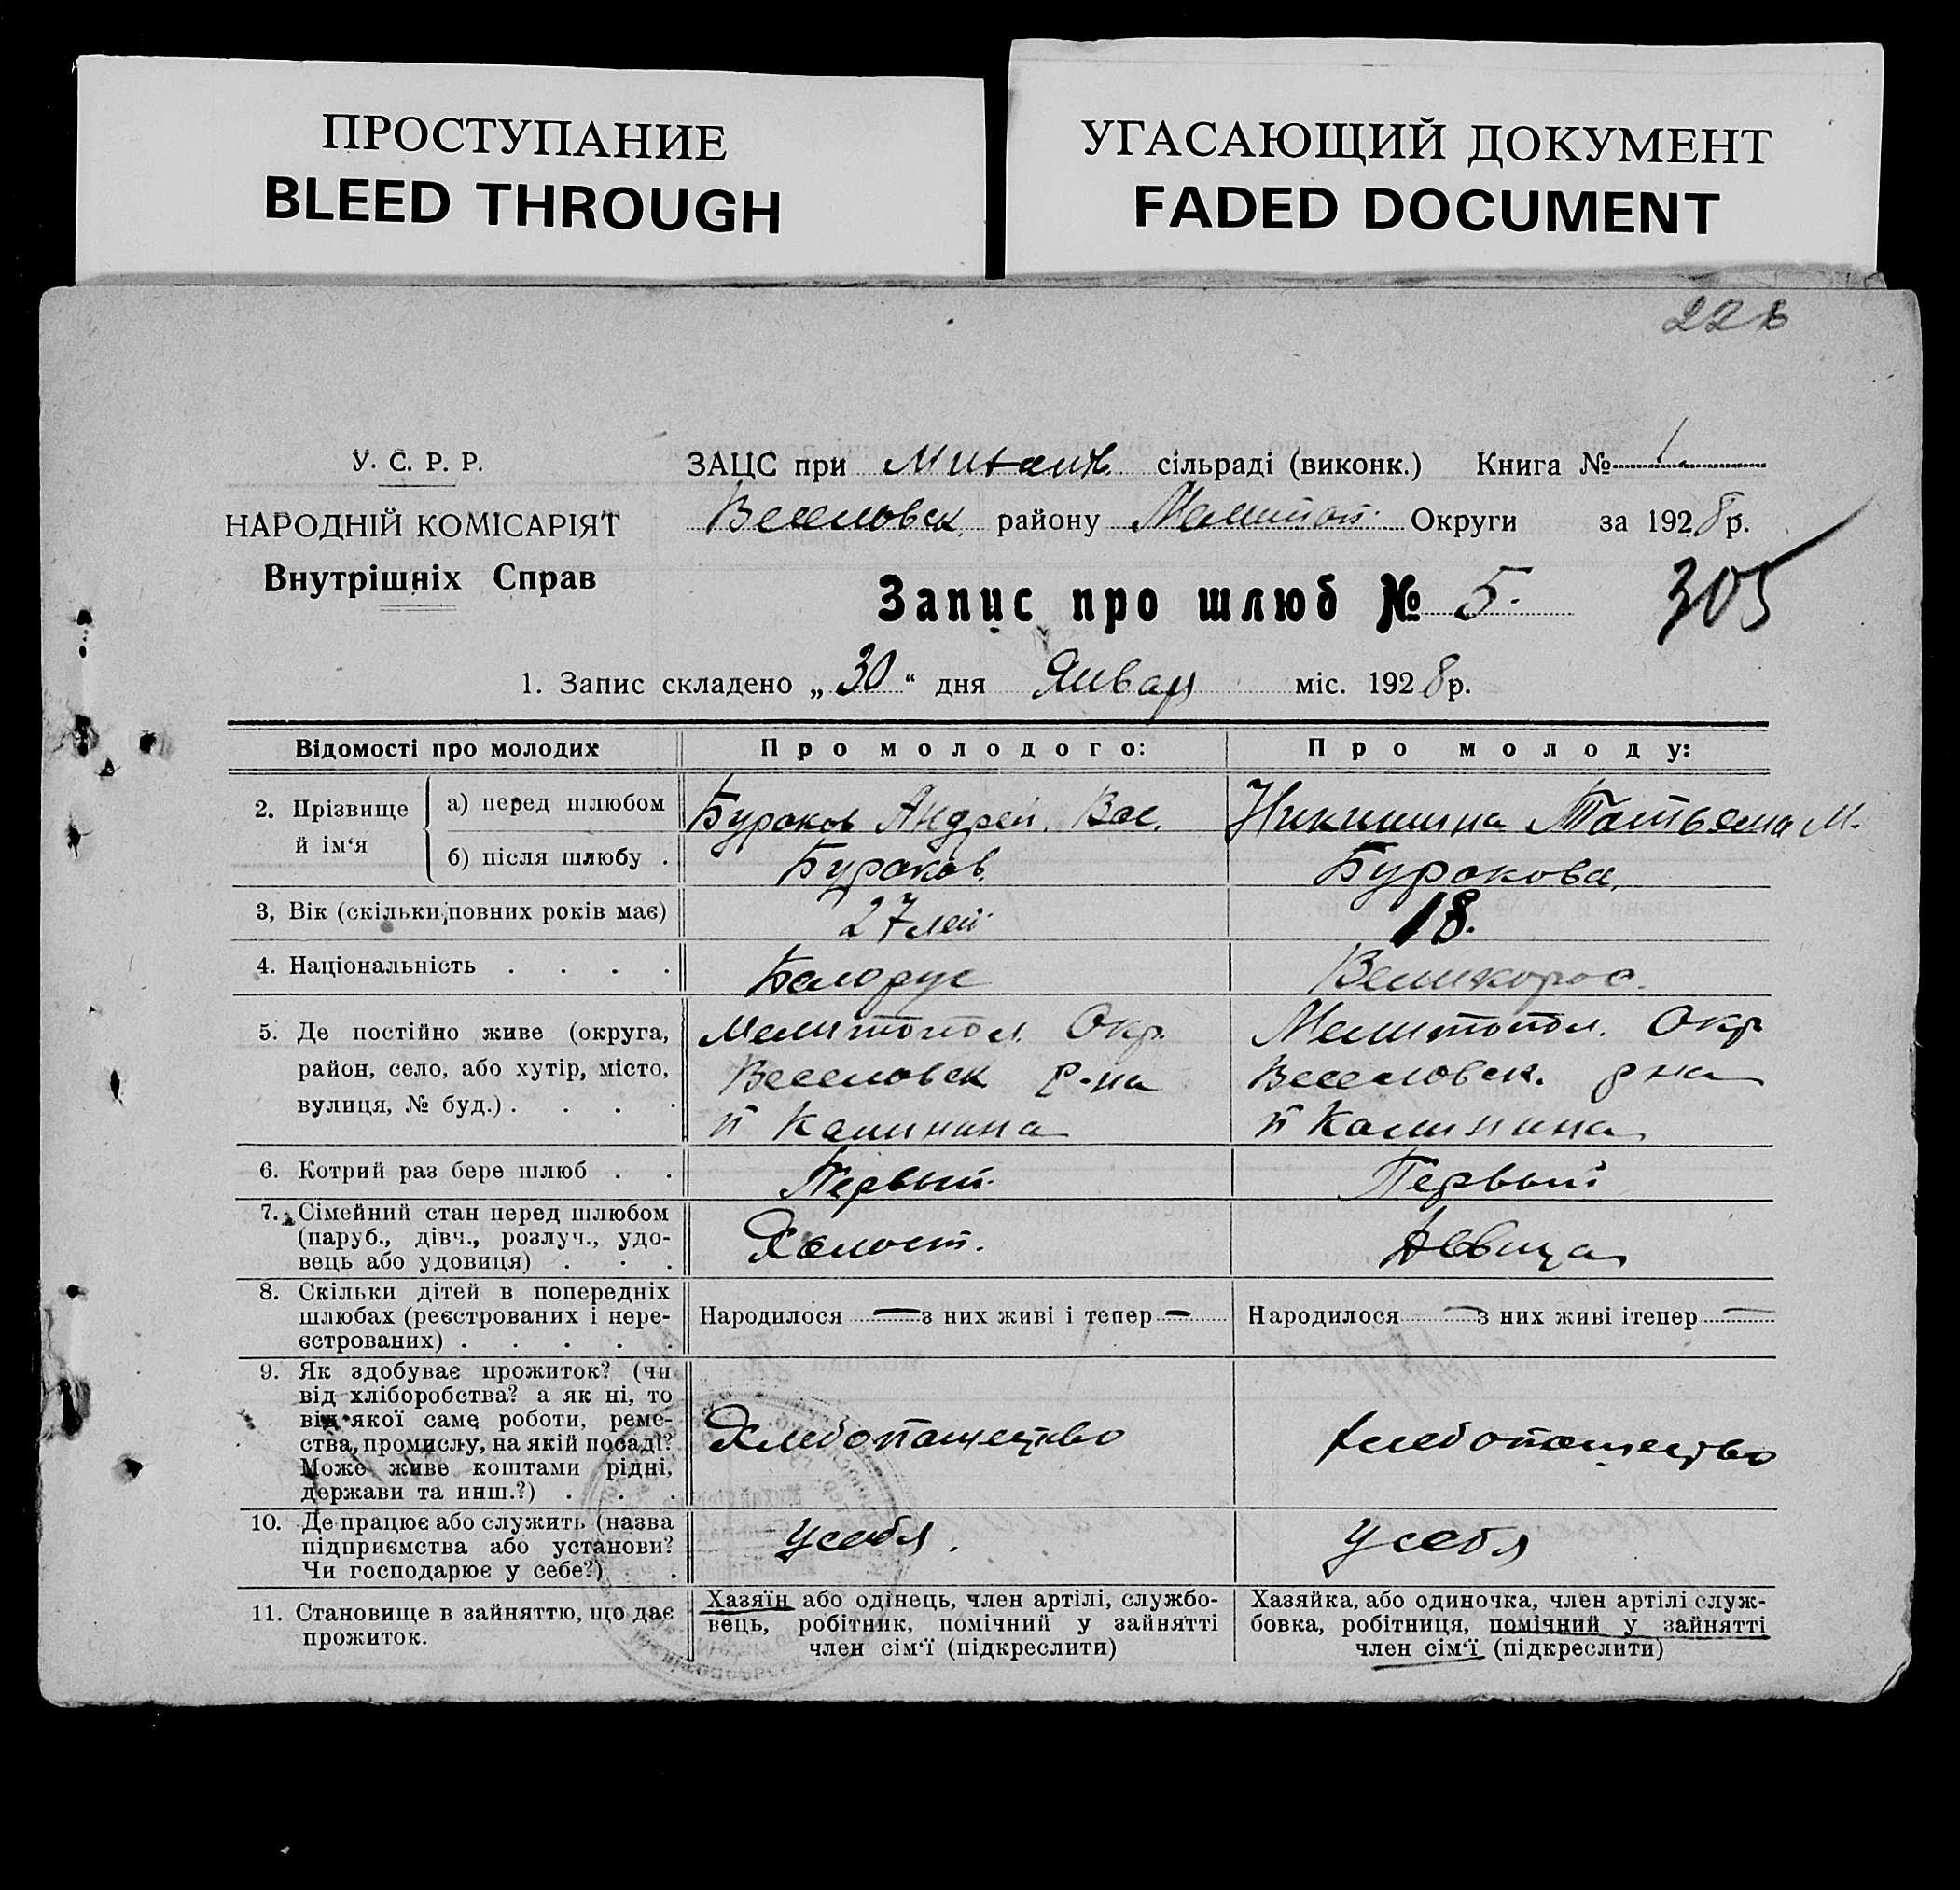 ПРОСТУПАНИЕ
BLEED THROUGH
УГАСАЮЩИЙ ДОКУМЕНТ
FADED DOCUMENT
У. С. Р. Р.
НАРОДНІЙ КОМІСАРІЯТ
Внутрішніх Справ
ЗАЦС при Михайл. сільраді (виконк.) Книга № 1
Веселовск. району Мелитоп. Округи за 1928 р.
Запис про шлюб № 5.
305
1. Запис складено „30“ дня Января міс. 1928 р.
Відомості про молодих Про молодого: Про молоду:
2. Прізвище й ім‘я
а) перед шлюбом Бураков Андрей Вас. Никишина Татьяна М.
б) після шлюбу . Бураков. Буракова.
3, Вік (скільки повних років має) 27 лет 18.
4. Національність . . . . Белорус Великорос.
5. Де постійно живе (округа, Мелитопол. Окр. Мелитопол. Окр
район, село, або хутір, місто, Веселовск Р-на Веселовск. р на
вулиця, № буд.) . . . . п Калинина п Калинина
6. Котрий раз бере шлюб . . Первый. Первый
7. Сімейний стан перед шлюбом
(паруб., дівч., розлуч., удо-
вець або удовиця) . . . Холост. Девица
8. Скільки дітей в попередніх
шлюбах (реєстрованих і нере-
єстрованих) . . . . .
Народилося — з них живі і тепер — Народилося — з них живі ітепер —
9. Як здобуває прожиток? (чи
від хліборобства? а як ні, то
від якої саме роботи, реме-
ства, промислу, на якій посаді?
Може живе коштами рідні,
держави та инш.?) . . .
Хлебопашество хлебопашество
10. Де працює або служить (назва
підприємства або установи?
Чи господарює у себе?) .
У себя. У себя
11. Становище в зайняттю, що дає
прожиток.
Хазяїн або одінець, член артілі, службо-
вець, робітник, помічний у зайнятті
член сім‘ї (підкреслити)
Хазяйка, або одиночка, член артілі служ-
бовка, робітниця, помічний у зайнятті
член сім‘ї (підкреслити)